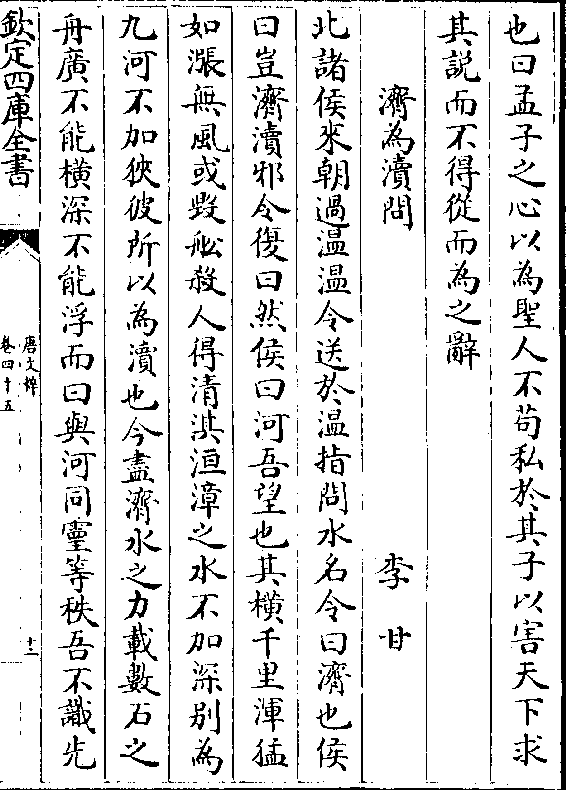 也曰孟子之心以為聖人不苟私於其子以害天下求
其説而不得從而為之辭
濟為瀆問 李甘
北諸侯來朝過温温令送於温指問水名令曰濟也侯
曰豈濟瀆邪令復曰然侯曰河吾望也其横千里渾猛
如漲無風或毀舩殺人得清淇洹漳之水不加深别為
九河不加狹彼所以為瀆也今盡濟水之力載數石之
舟廣不能横深不能浮而曰與河同靈等秩吾不識先
欽定四庫全書
唐文粹
卷四十五
十二